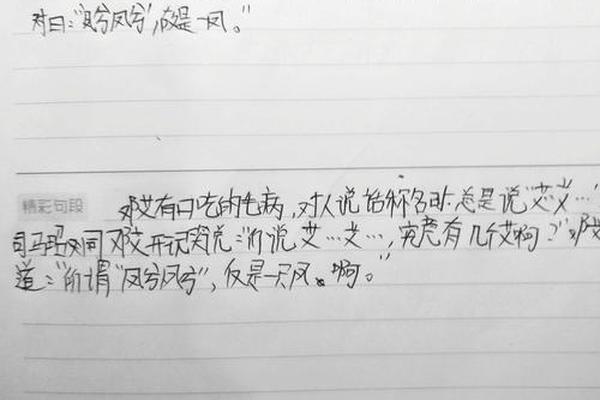 对曰:“凤兮凤兮”,故是一凤。”
精彩句段
邓艾有口吃的毛病,对人说话称名时总是说“艾艾…”
司马昭对同邓艾开玩笑说:“你说艾…艾…,究竟有几个艾啊?”邓艾
道:“所谓“凤兮凤兮”,仅是一只凤。啊。”